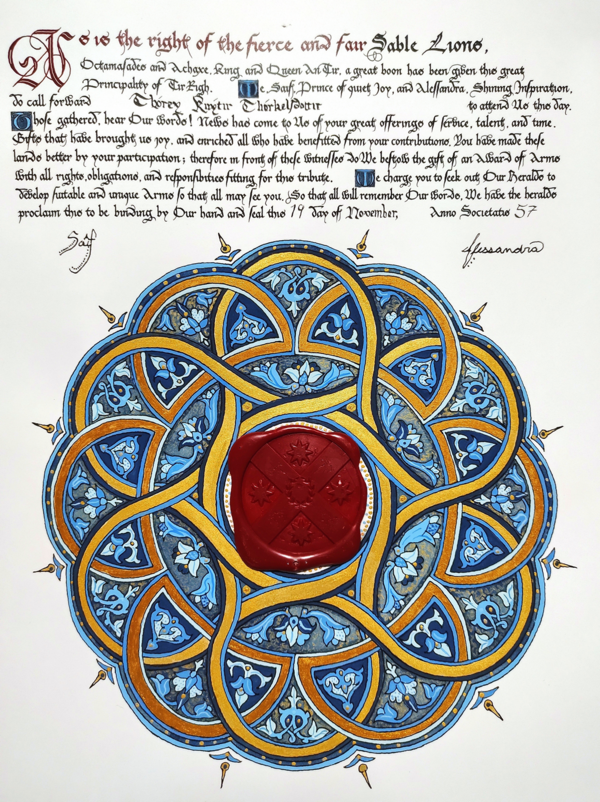 As is the right of the fierce and fair Sable Lions,
Octamasades and Achaxe, King and Queen An Tir, a great boon has been given this great
Principality of Tir Righ. We, Saif, Prince of quiet Joy, and Alessandra, Shining Inspiration,
do call forward Thorey Knytir Thorkelsdotir to attend Us this day.
Those gathered, hear Our Words! News has come to Us of your great offerings of service, talent, and time.
Gifts that have brought us joy, and enriched all who have benefitted from your contributions. You have made these
lands better by your participation; therefore in front of these witnesses do We bestow the gift of an Award of Arms
with all rights, obligations, and responsibilities fitting for this tribute. We charge you to seek out Our Heralds to
develop suitable and unique Arms so that all may see you. So that all will remember Our Words, We have the heralds
proclaim this to be binding by Our hand and seal this 19 day of November, Anno Societatis 57
Saif Alessandra